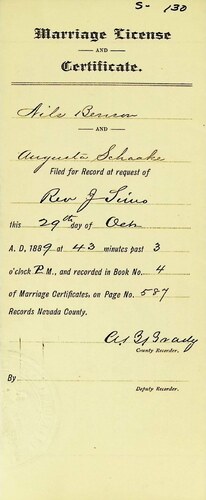 S- 130
Marriage License
AND
Certificate.
Nils Benson
AND
Augusta Schaake
Filed for Record at request of
Rev J Sims
this 29th day of Oct
A. D. 1889 at 43 minutes past 3
o'clock P.M., and recorded in Book No. 4
of Marriage Certificates, on Page No. 587
Records Nevada County.
Brady
County Recorder.
By
Deputy Recorder.